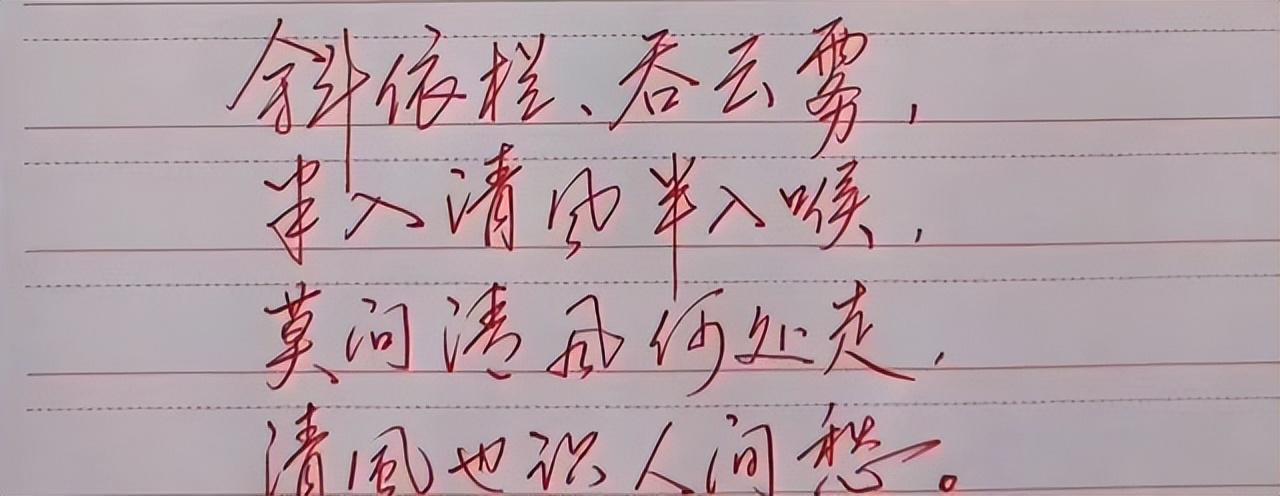 斜依栏、吞云雾，
半入清风半入喉，
莫问清风何处走，
清風也识人间愁。